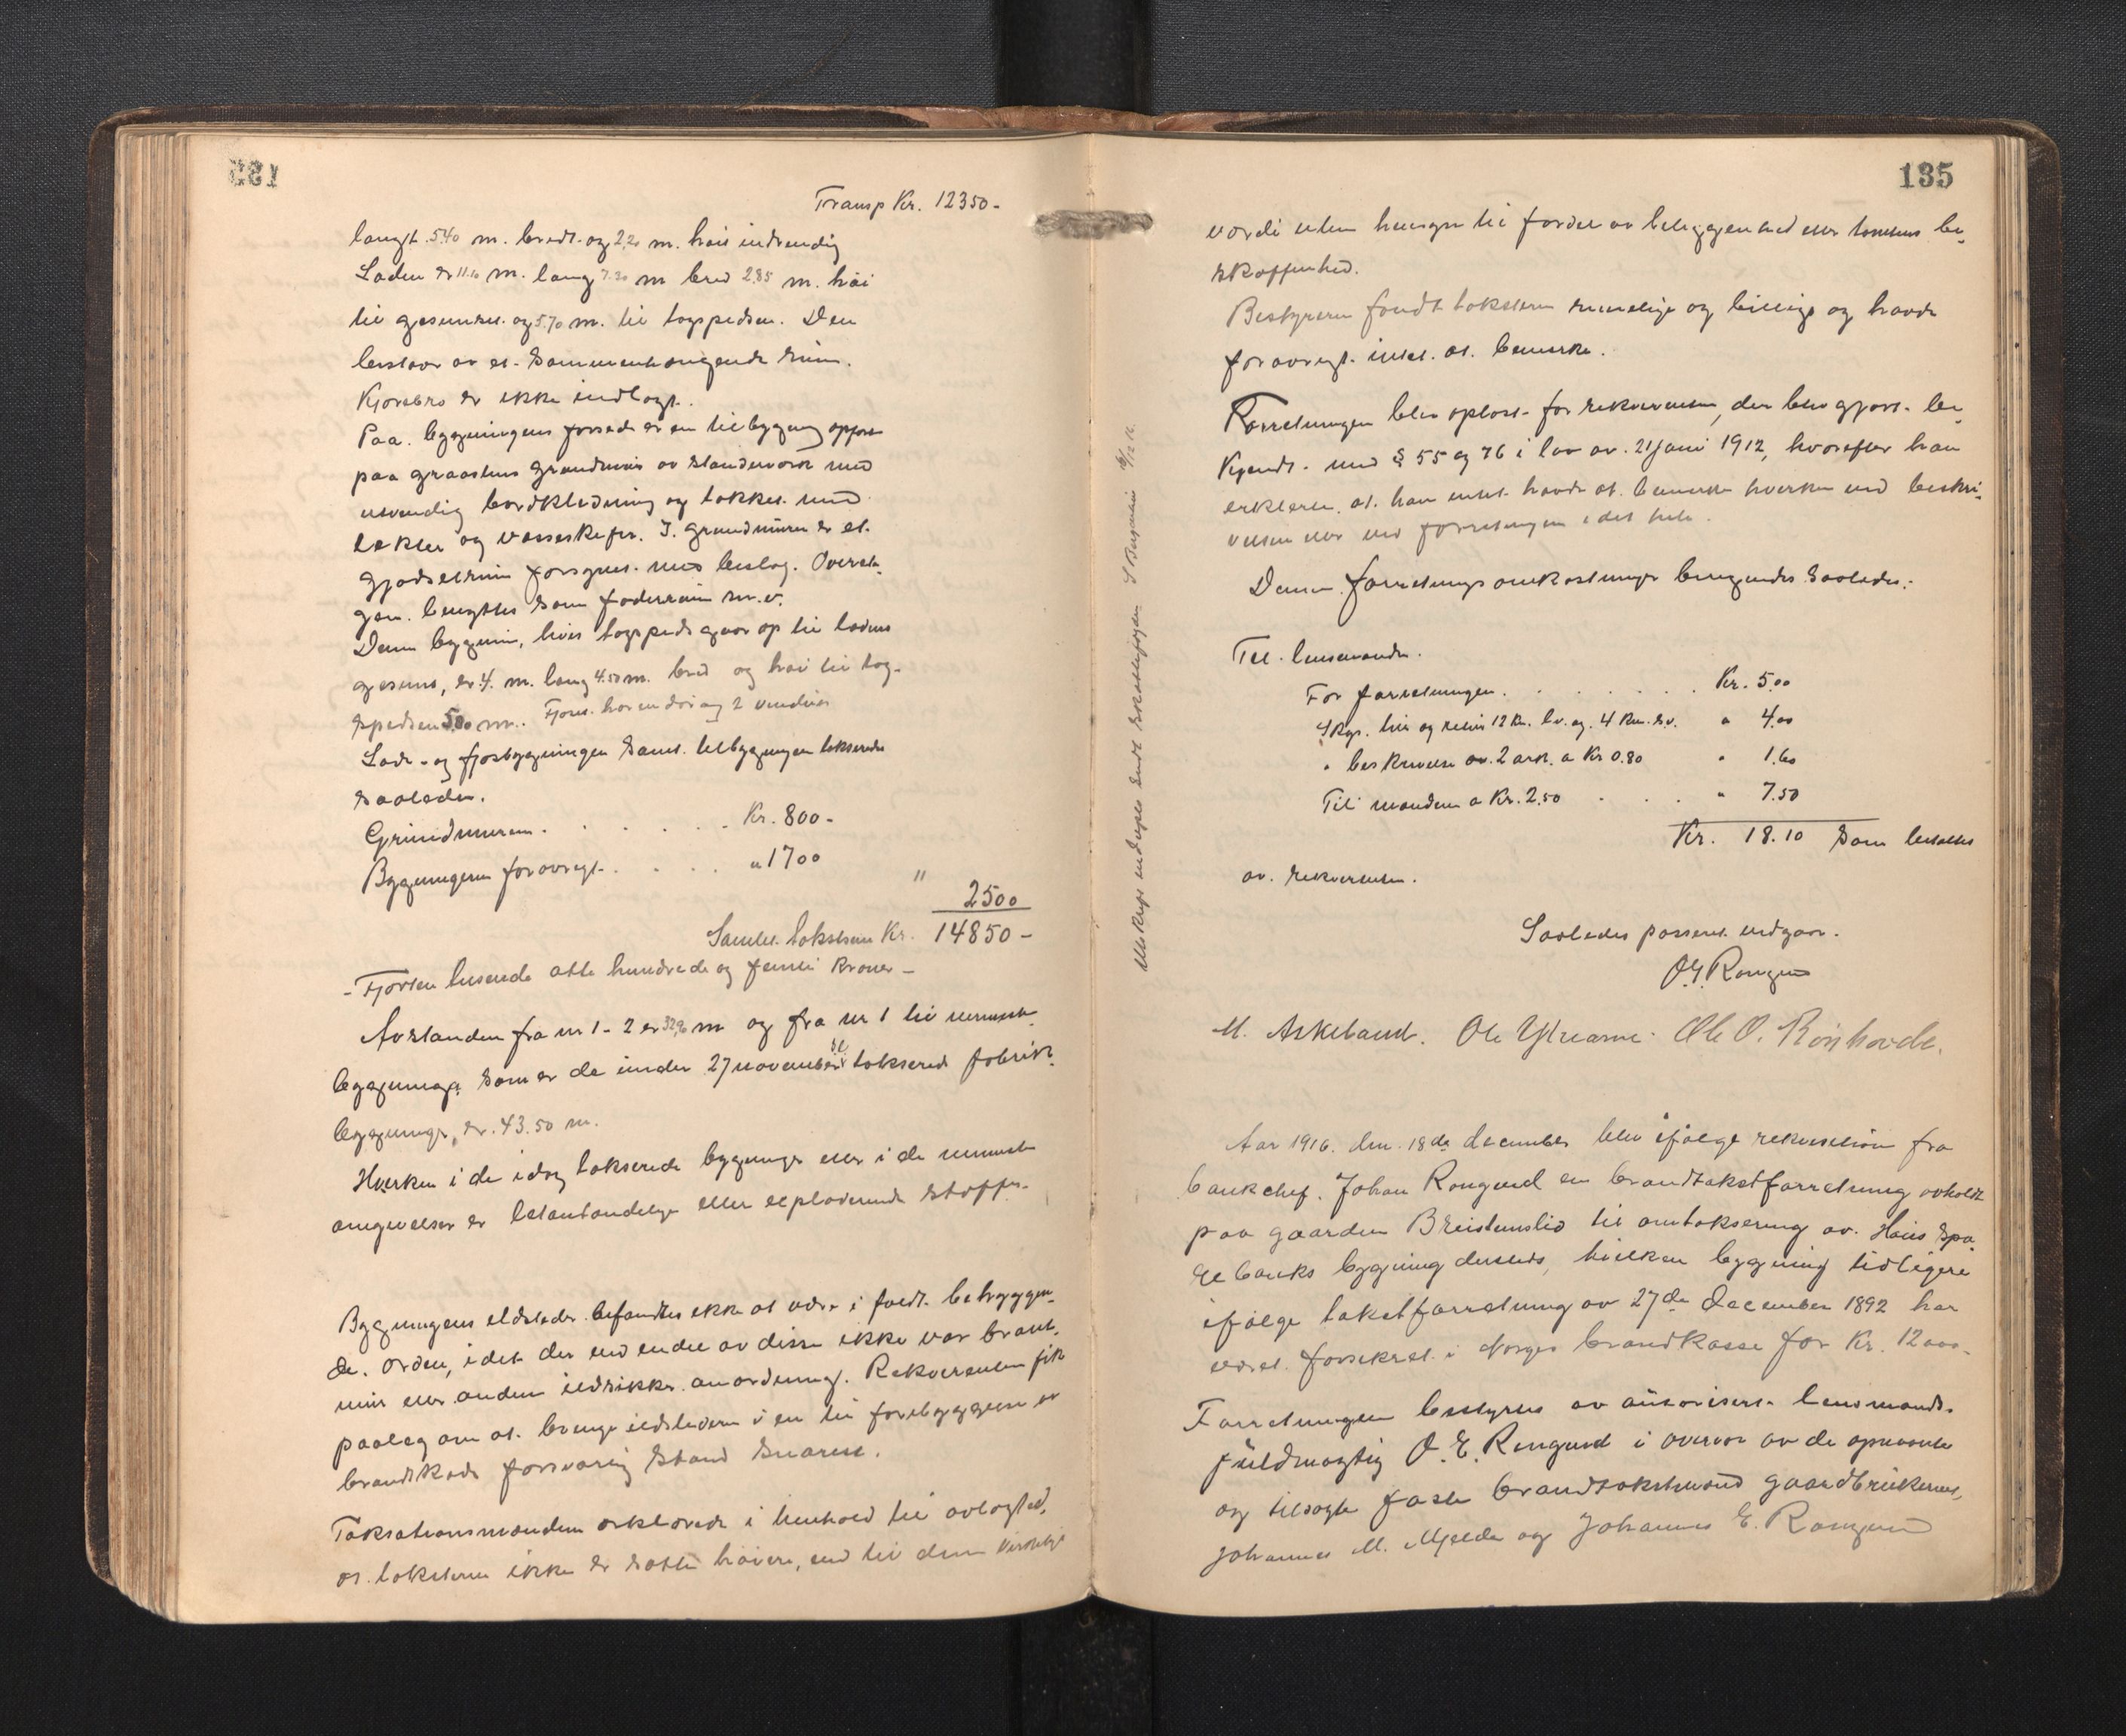 Transp Kr. 12350-
langt 5.40 m. bredt og 2,20 m. høit indvendig
Laden er 11.10 m. lang 7.20 m bred 2.85 m. høi
til gesimsen og 5.70 m. til tagspedsen. Den
bestaar av et sammenhængende rum.
Kjørebro er ikke indlagt.
Paa bygningens forside er en tilbygning opført
paa graastens grundmur av standerverk med
utvendig bordklædning og tækket med
lekter og vasseskifer. I grundmuren er et
gjødselrum forsynet med beslag. Overeta-
gen benyttes som foderrum m.v.
Denne bygning, hvis tagspeds gaar op til ladens
gesims, er 4. m. lang 4.50 m. bred og høi til tag-
spedsen 5,00 m. Fjøset har en dør og 2 vinduer
Lade- og fjøsbygningen samt tilbygningen takseredes
saaledes.
Grundmuren . . . . . Kr. 800-
Bygningen forøvrigt . . . . " 1700
" 2500
Samlet takstsum Kr. 14850-
- Fjorten tusende otte hundrede og femti kroner -
Avstanden fra nr 1- 2 er 32,90 m og fra nr 1 til nærmeste
bygninger, som er de under 27 november takserede fabrik-
bygninger, er 43.50 m.
Hverken i de idag takserede bygninger eller i de nærmeste
omgivelser er letantændelige eller exploderende stoffer.
Bygningens ildsteder befandtes ikke at være i fuldt betryggen-
de orden, idet der ved endel av disse ikke var brand-
mur eller anden ildsikker anordning. Rekvirenten fik
paalæg om at bringe ildstederne i en til forebyggelse av
brandskade forsvarlig stand snarest.
Taksationsmændene erklærede i henhold til avlagt ed,
at taksterne ikke er satte høiere, end til den virkelige
135
værdi uten hensyn til fordel av beliggenhed eller tomtens be-
skaffenhed.
Bestyreren fandt taksterne rimelige og billige og havde
forøvrigt intet at bemerke.
Forretningen blev oplæst for rekvirenten, der blev gjort be-
kjendt med § 55 og 76 i lov av 21 juni 1912, hvorefter han
erklærte at han intet havde at bemerke hverken ved beskri-
velsen eller ved forretningen i det hele.
Denne forretnings omkostninger beregnedes saaledes:
Til lensmanden.
For forretningen . . . . . . Kr. 5.00
Skyds hin og retur 12 Km. lv. og 4 Km. sv. " 4.00
" beskrivelse av 2 ark a Kr 0.80 " 1.60
Til mændene a Kr. 2.50 . . . " 7.50
Kr. 18.10 som betaltes
av rekvirenten.
Saaledes passeret vidgaar.
O. E. Rongved
M. Askeland. Ole Ytrearne. Ole O. Rønhovde.
Aar 1916 den 18de december blev ifølge rekvisition fra
bankchef Johan Rongved en brandtakstforretning avholdt
paa gaarden Breistenslid til omtaksering av Haus Spa-
rebanks bygning dersteds, hvilken bygning tidligere
ifølge takstforretning av 27de december 1892 har
været forsikret i Norges brandkasse for Kr. 12000.
Forretningen bestyres av autorisert lensmands-
fuldmægtig O. E. Rongved i overvær av de opnævnte
og tilsagte faste brandtakstmænd gaardbrukerne,
Johannes M. Mjelde og Johannes E. Rongved